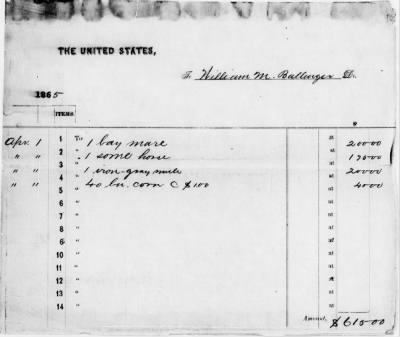 THE UNITED STATES,
To William M. Ballinger Dr.
1865
ITEMS $
Apr. 1 1 To 1 bay mare at 200 00
" " 2 " 1 some horse at 175 00
" " 3 " 1 iron-gray mule at 200 00
" " 4 " 40 bu. corn @ $1.00 at 40 00
5 " at
6 " at
7 " at
8 " at
9 " at
10 " at
11 " at
12 " at
13 " at
14 " at
Amount, $615 00